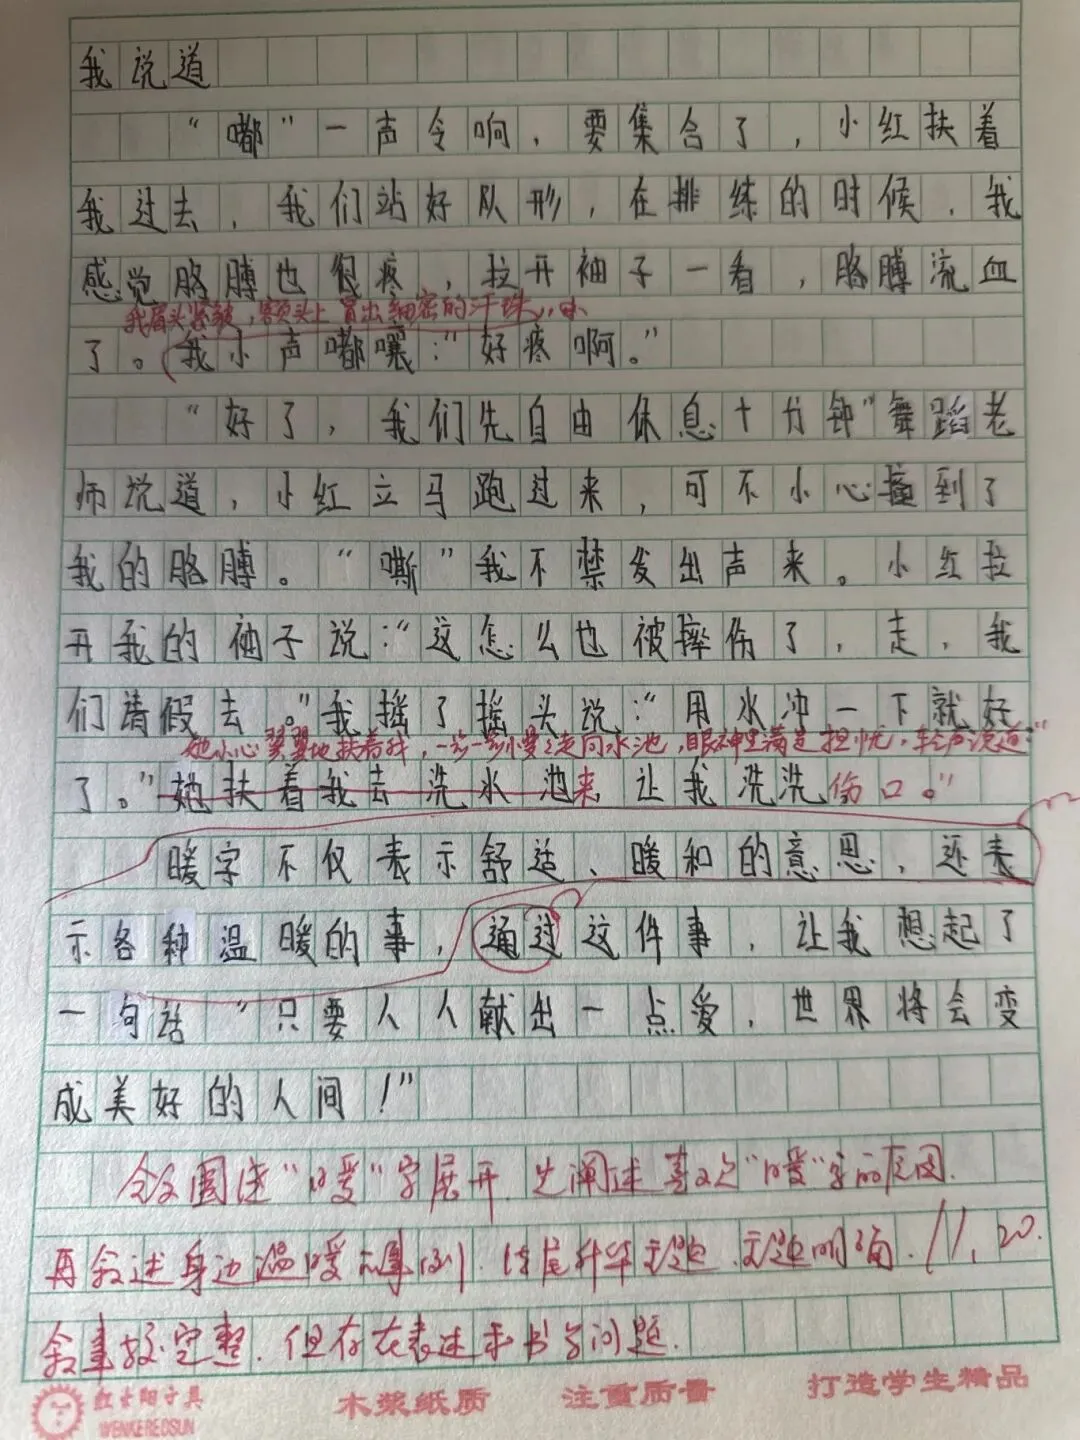 我说道
“嘟”一声令响，要集合了，小红扶着
我过去，我们站好队形，在排练的时候，我
感觉胳膊也很疼，拉开袖子一看，胳膊流血
我眉头紧皱，额头上冒出细密的汗珠，
了。我小声嘟囔：“好疼啊。”
“好了，我们先自由休息十分钟”舞蹈老
师说道，小红立马跑过来，可不小心碰到了
我的胳膊。“嘶”我不禁发出声来。小红拉
开我的袖子说：“这怎么也被摔伤了，走，我
们请假去。”我摇了摇头说：“用水冲一下就好
她小心翼翼地扶着我，一步一步慢慢走向水池，眼神里满是担忧，轻声说道：“
了。”她扶着我去洗水池来让我洗洗伤口。”
暖字不仅表示舒适、暖和的意思，还表
示各种温暖的事，通过这件事，让我想起了
一句话“只要人人献出一点爱，世界将会变
成美好的人间！”
叙围绕“暖”字展开，先阐述喜欢“暖”字的原因，
再叙述身边温暖事例，结尾升华主题，主题明确。11.20.
叙事较完整，但存在表述和书写问题。
木浆纸质 注重质量 打造学生精品
WENKEREDSUN